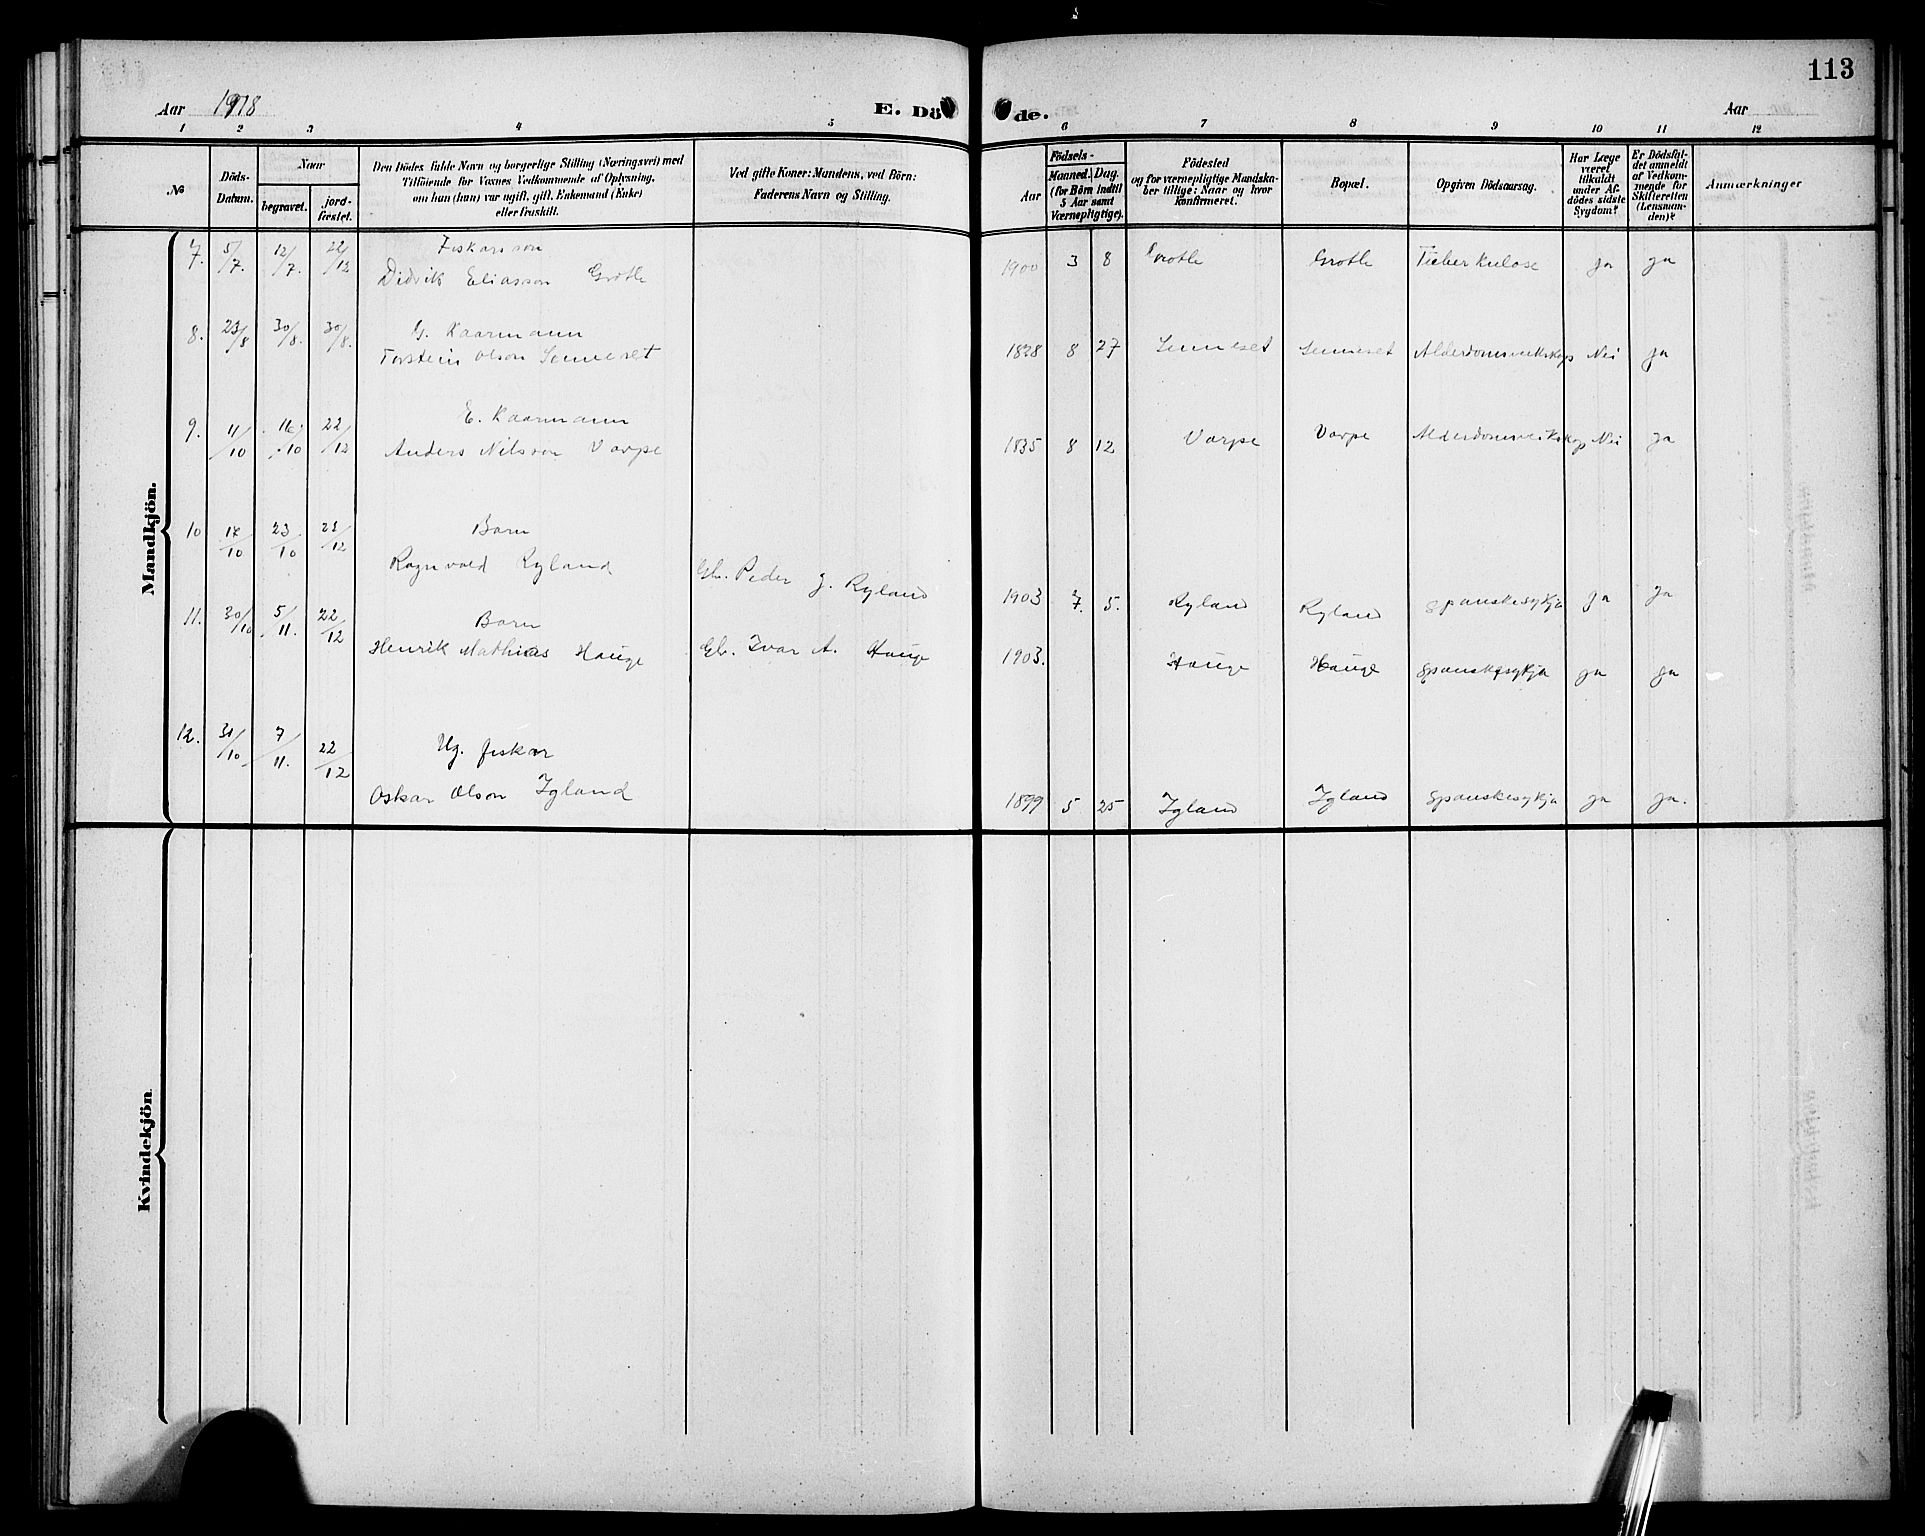 113
Aar 1918
E. Dö de.
Aar
1 2 3 4 5 6 7 8 9 10 11 12
№
Döds-
Datum.
Naar
begravet.
jord-
fæstet.
Den Dödes fulde Navn og borgerlige Stilling (Næringsvei) med
Tilföiende for Voxnes Vedkommende af Oplysning,
om han (hun) var ugift, gift, Enkemand (Enke)
eller fraskilt.
Ved gifte Koner: Mandens, ved Börn:
Faderens Navn og Stilling.
Födsels-
Aar
Maaned. Dag.
(for Börn indtil
5 Aar samt
Værnepligtige).
Födested
og for værnepligtige Mandska-
ber tillige: Naar og hvor
konfirmeret.
Bopæl.
Opgiven Dödsaarsag.
Har Læge
været
tilkaldt
under Af-
dödes sidste
Sygdom?
Er Dödsfal-
det anmeldt
af Vedkom-
mende for
Skifteretten
(Lensman-
den)?
Anmærkninger
Mandkjön.
7. 5/7. 12/7. 22/12 Fiskarsson
Didrik Eliasson Grotle 1900 3 8 Grotle Grotle Tuberkulose ja ja
8. 23/8 30/8. 30/8. G. Kaarmann
Torstein Olson Senneset 1828 8 27 Senneset Senneset Alderdomsveikskap Nei ja
9. 11/10 16/10 22/12 E. Kaarmann
Anders Nilsson Varpe 1835 8 12 Varpe Varpe Alderdomsveikskap Nei ja
10 17/10 23/10 22/12 Barn
Ragnvald Ryland Gb. Peder J. Ryland 1903 7. 5. Ryland Ryland Spanskesykja ja ja
11. 30/10 5/11. 22/12 Barn
Henrik Mathias Hauge Gb. Ivar A. Hauge 1903. Hauge Hauge Spanskesykja ja ja
12. 31/10 7/11. 22/12 Ug. fiskar
Oskar Olson Igland 1899 5 25 Igland Igland Spanskesykja ja ja.
Kvindekjön